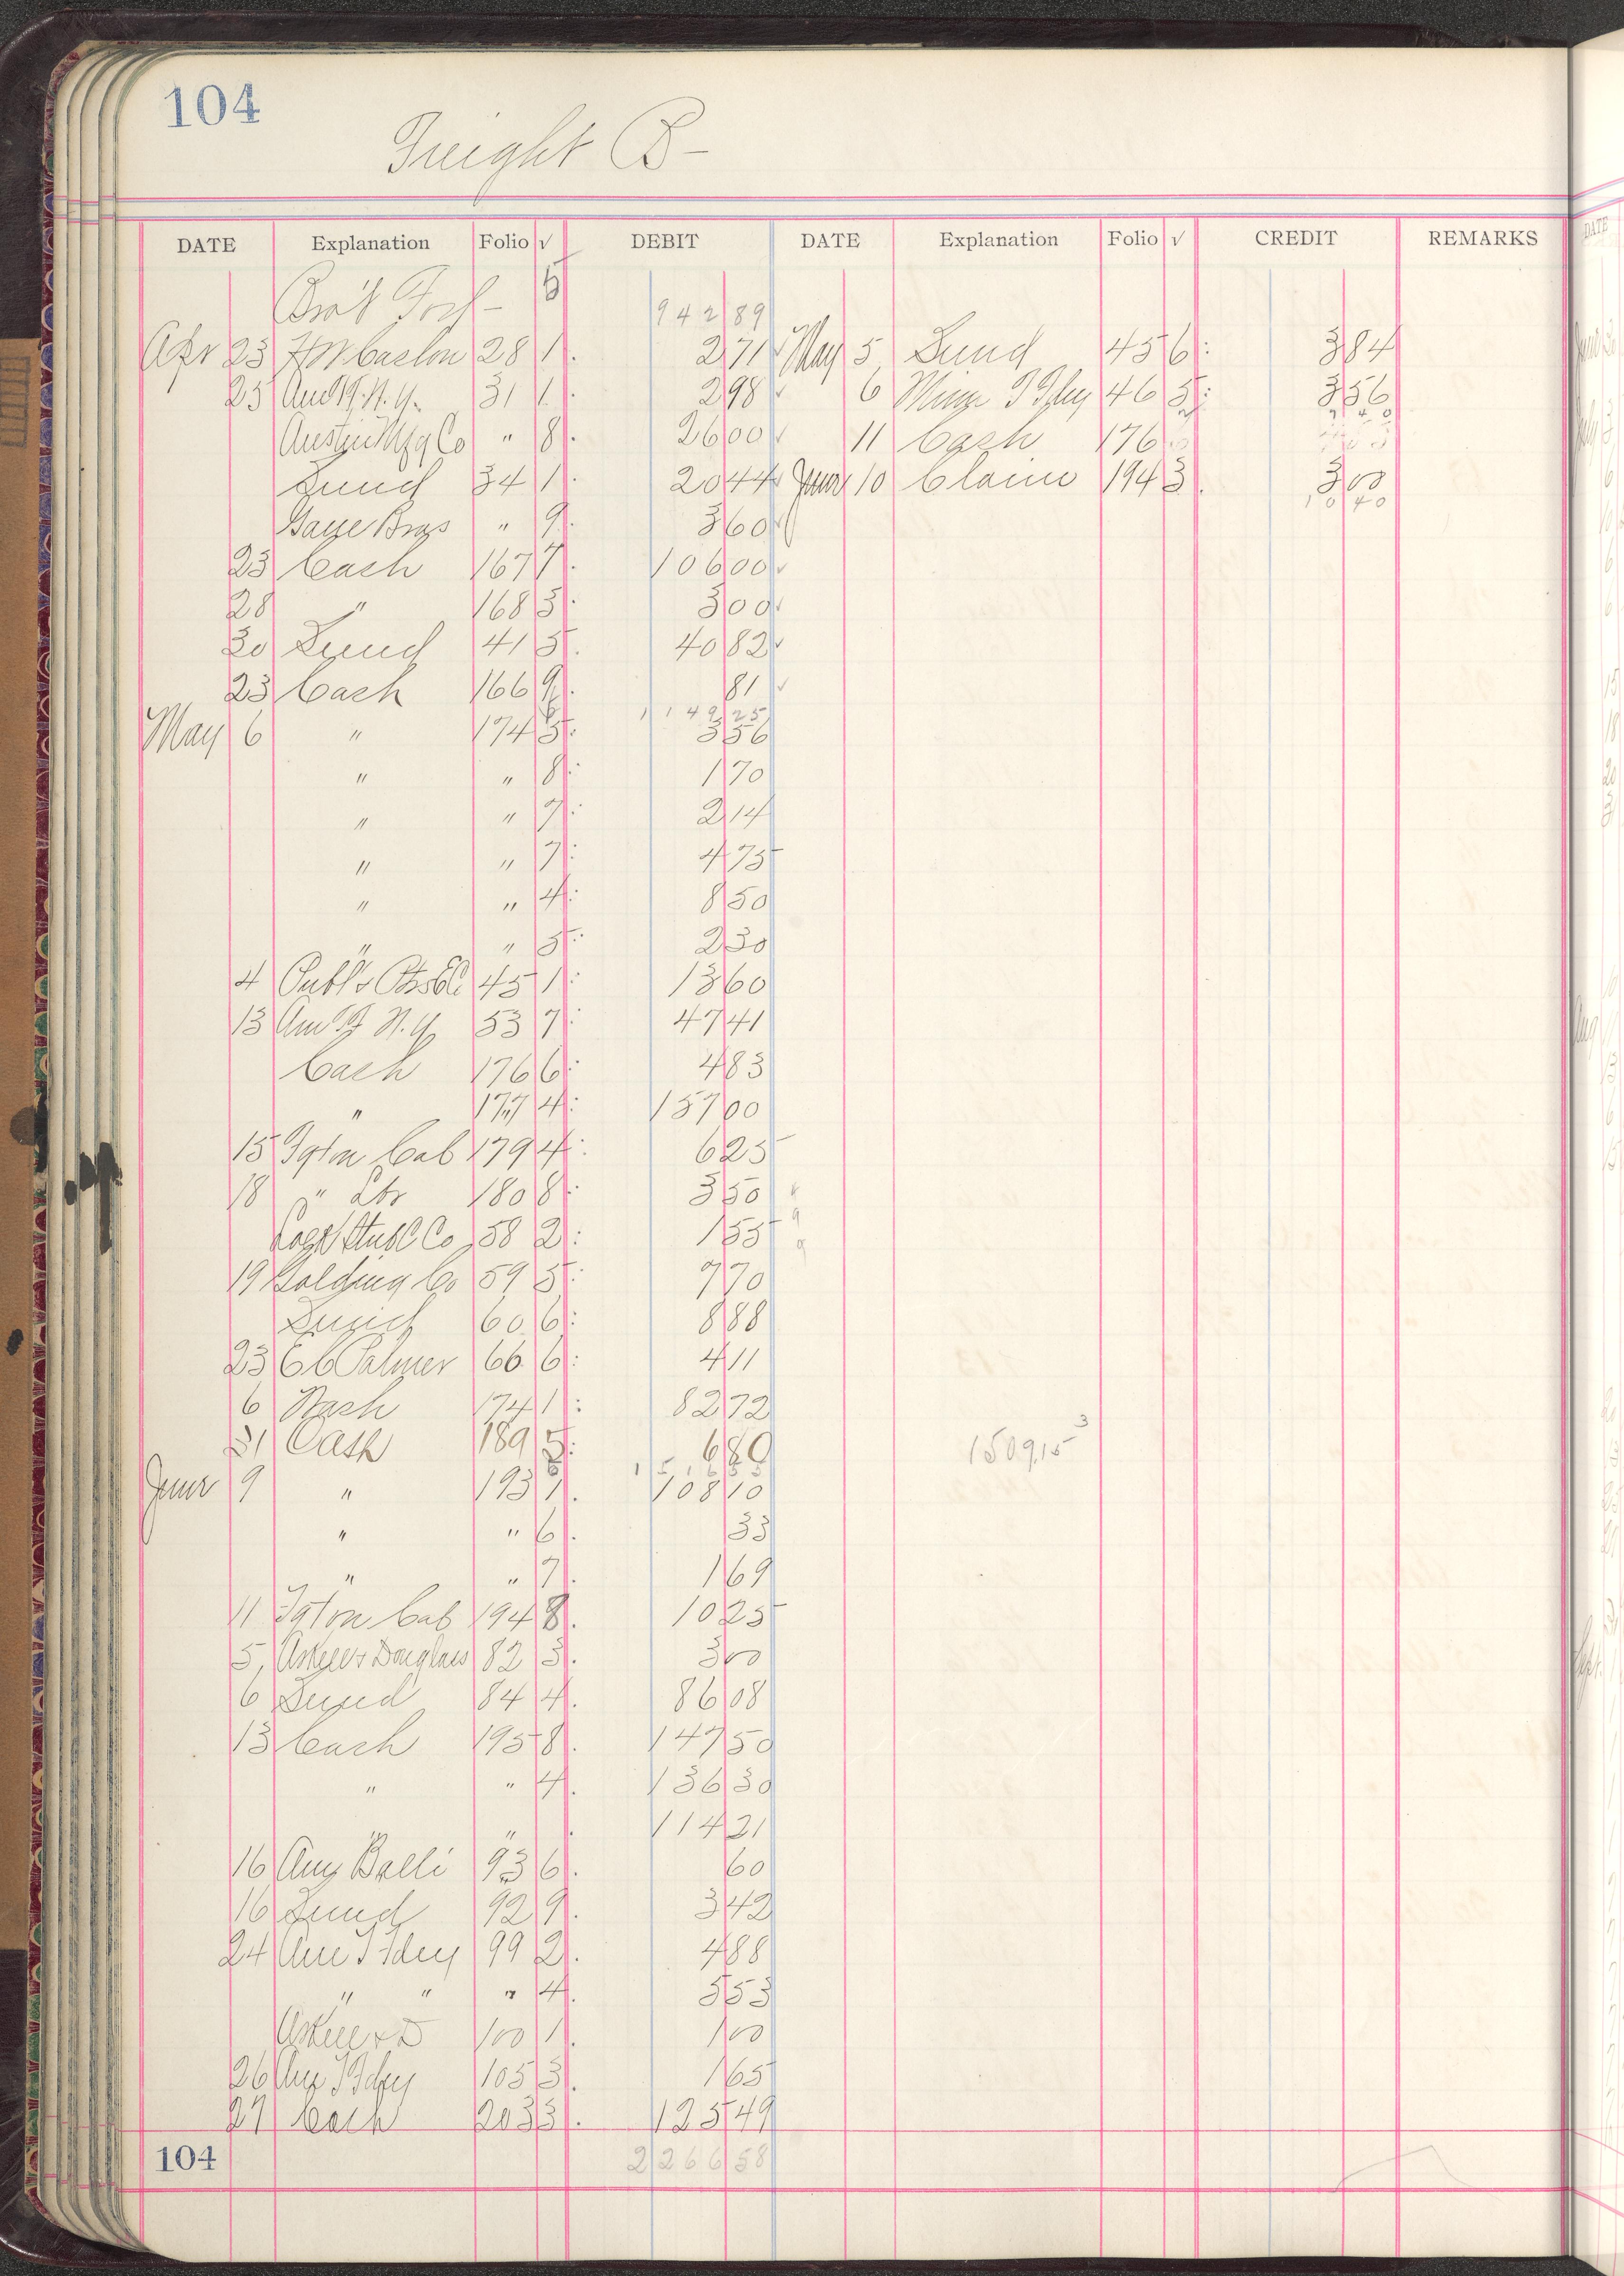 104
Freight B-
DATE Explanation Folio √ DEBIT DATE Explanation Folio √ CREDIT REMARKS
Bro't Ford - 5 942 89
Apr 23 H W Caslon 28 1 2 71 May 5 Sund 45 6 3 84
25 Am T F. N. Y. 31 1 2 98 6 Minn T Fdy 46 5 3 56
Austin Mfg Co " 8 26 00 11 Cash 176
Sund 34 1 20 44 June 10 Claim 194 3 3 00
Gaue Bros " 9 3 60 10 40
23 Cash 167 7 106 00
28 " 168 3 3 00
30 Sund 41 5 40 82
23 Cash 166 9 81
1149 25
May 6 " 174 5 3 56
" " 8 1 70
" " 7 2 14
" " 7 4 75
" " 4 8 50
" " 5 2 30
4 Publ & 45 1 13 60
13 Am T F N. Y 53 7 47 41
Cash 176 6 4 83
" 177 4 157 00
15 Fgton Cab 179 4 6 25
18 " Lbr 180 8 3 50
Stub C Co 58 2 1 55
19 Golding Co 59 5 7 70
Sund 60 6 8 88
23 E C Palmer 66 6 4 11
6 Nash 174 1 82 72
31 Cash 189 5 6 80 1509,15 3
June 9 " 193 1 108 10
" " 6 33
" " 7 1 69
11 Fgton Cab 194 8 10 25
5 Askew & Douglass 82 3 3 00
6 Sund 84 4 86 08
13 Cash 195 8 147 50
" " 4 136 30
" " 114 21
16 Am Balli 93 6 60
16 Sund 92 9 3 42
24 Am T Fdy 99 2 4 88
" " " 4 5 53
Askew & D 100 1 1 00
26 Am T Fdy 105 3 1 65
27 Cash 203 3 125 49
104 2266 58